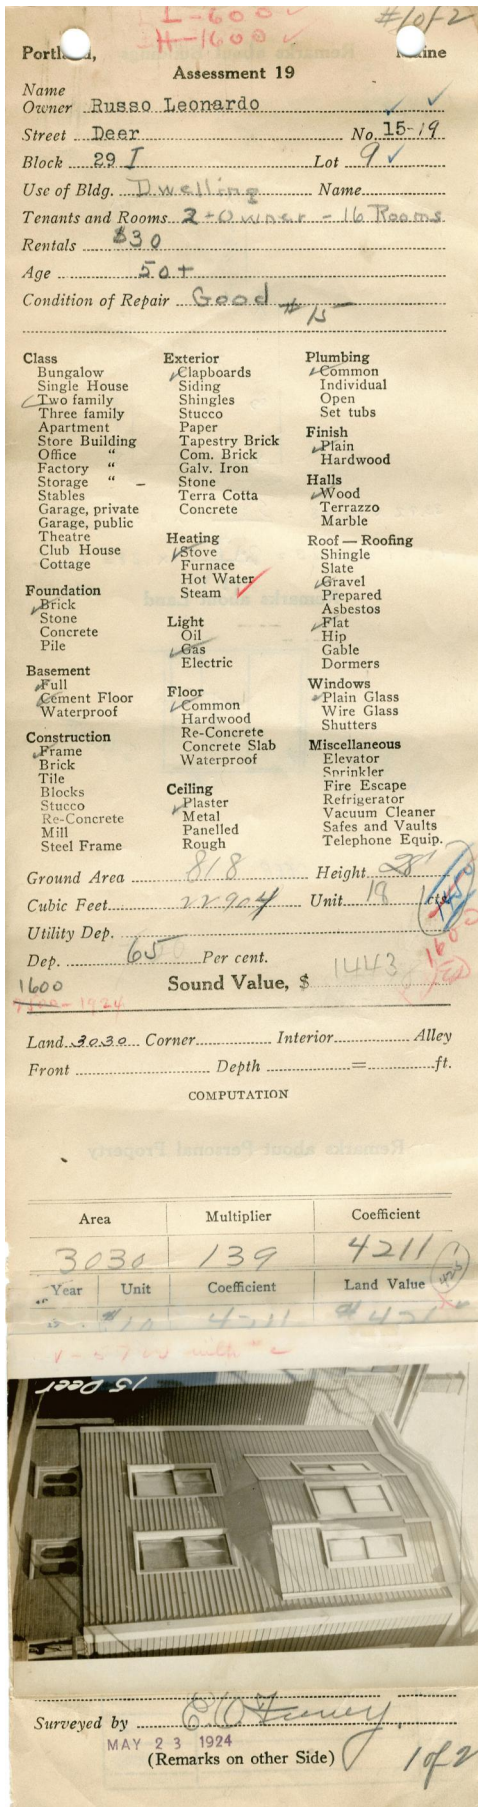 L-600
H-1600
#1 of 2
Portland, Maine
Assessment 19
Name
Owner Russo Leonardo
Street Deer No. 15-19
Block 29 I Lot 9
Use of Bldg. Dwelling Name
Tenants and Rooms 2 + Owner - 16 Rooms
Rentals $30
Age 50+
Condition of Repair Good #15
Class
Bungalow
Single House
Two family
Three family
Apartment
Store Building
Office "
Factory "
Storage "
Stables
Garage, private
Garage, public
Theatre
Club House
Cottage
Foundation
Brick
Stone
Concrete
Pile
Basement
Full
Cement Floor
Waterproof
Construction
Frame
Brick
Tile
Blocks
Stucco
Re-Concrete
Mill
Steel Frame
Exterior
Clapboards
Siding
Shingles
Stucco
Paper
Tapestry Brick
Com. Brick
Galv. Iron
Stone
Terra Cotta
Concrete
Heating
Stove
Furnace
Hot Water
Steam
Light
Oil
Gas
Electric
Floor
Common
Hardwood
Re-Concrete
Concrete Slab
Waterproof
Ceiling
Plaster
Metal
Panelled
Rough
Plumbing
Common
Individual
Open
Set tubs
Finish
Plain
Hardwood
Halls
Wood
Terrazzo
Marble
Roof — Roofing
Shingle
Slate
Gravel
Prepared
Asbestos
Flat
Hip
Gable
Dormers
Windows
Plain Glass
Wire Glass
Shutters
Miscellaneous
Elevator
Sprinkler
Fire Escape
Refrigerator
Vacuum Cleaner
Safes and Vaults
Telephone Equip.
Ground Area 818 Height 28'
Cubic Feet 22904 Unit 18
Utility Dep.
Dep. 65 Per cent. 1600
1600 Sound Value, $ 1443
Land 3030 Corner Interior Alley
Front Depth = ft.
COMPUTATION
Area Multiplier Coefficient
3030 139 4211
Year Unit Coefficient Land Value 425
$10 4211 $421
15 Deer
Surveyed by
MAY 23 1924
(Remarks on other Side)
1 of 2